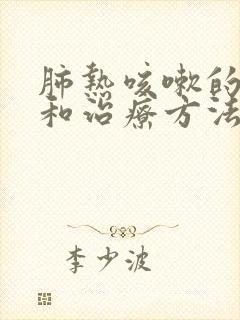 肺热咳嗽的
和治疗方法
李少波